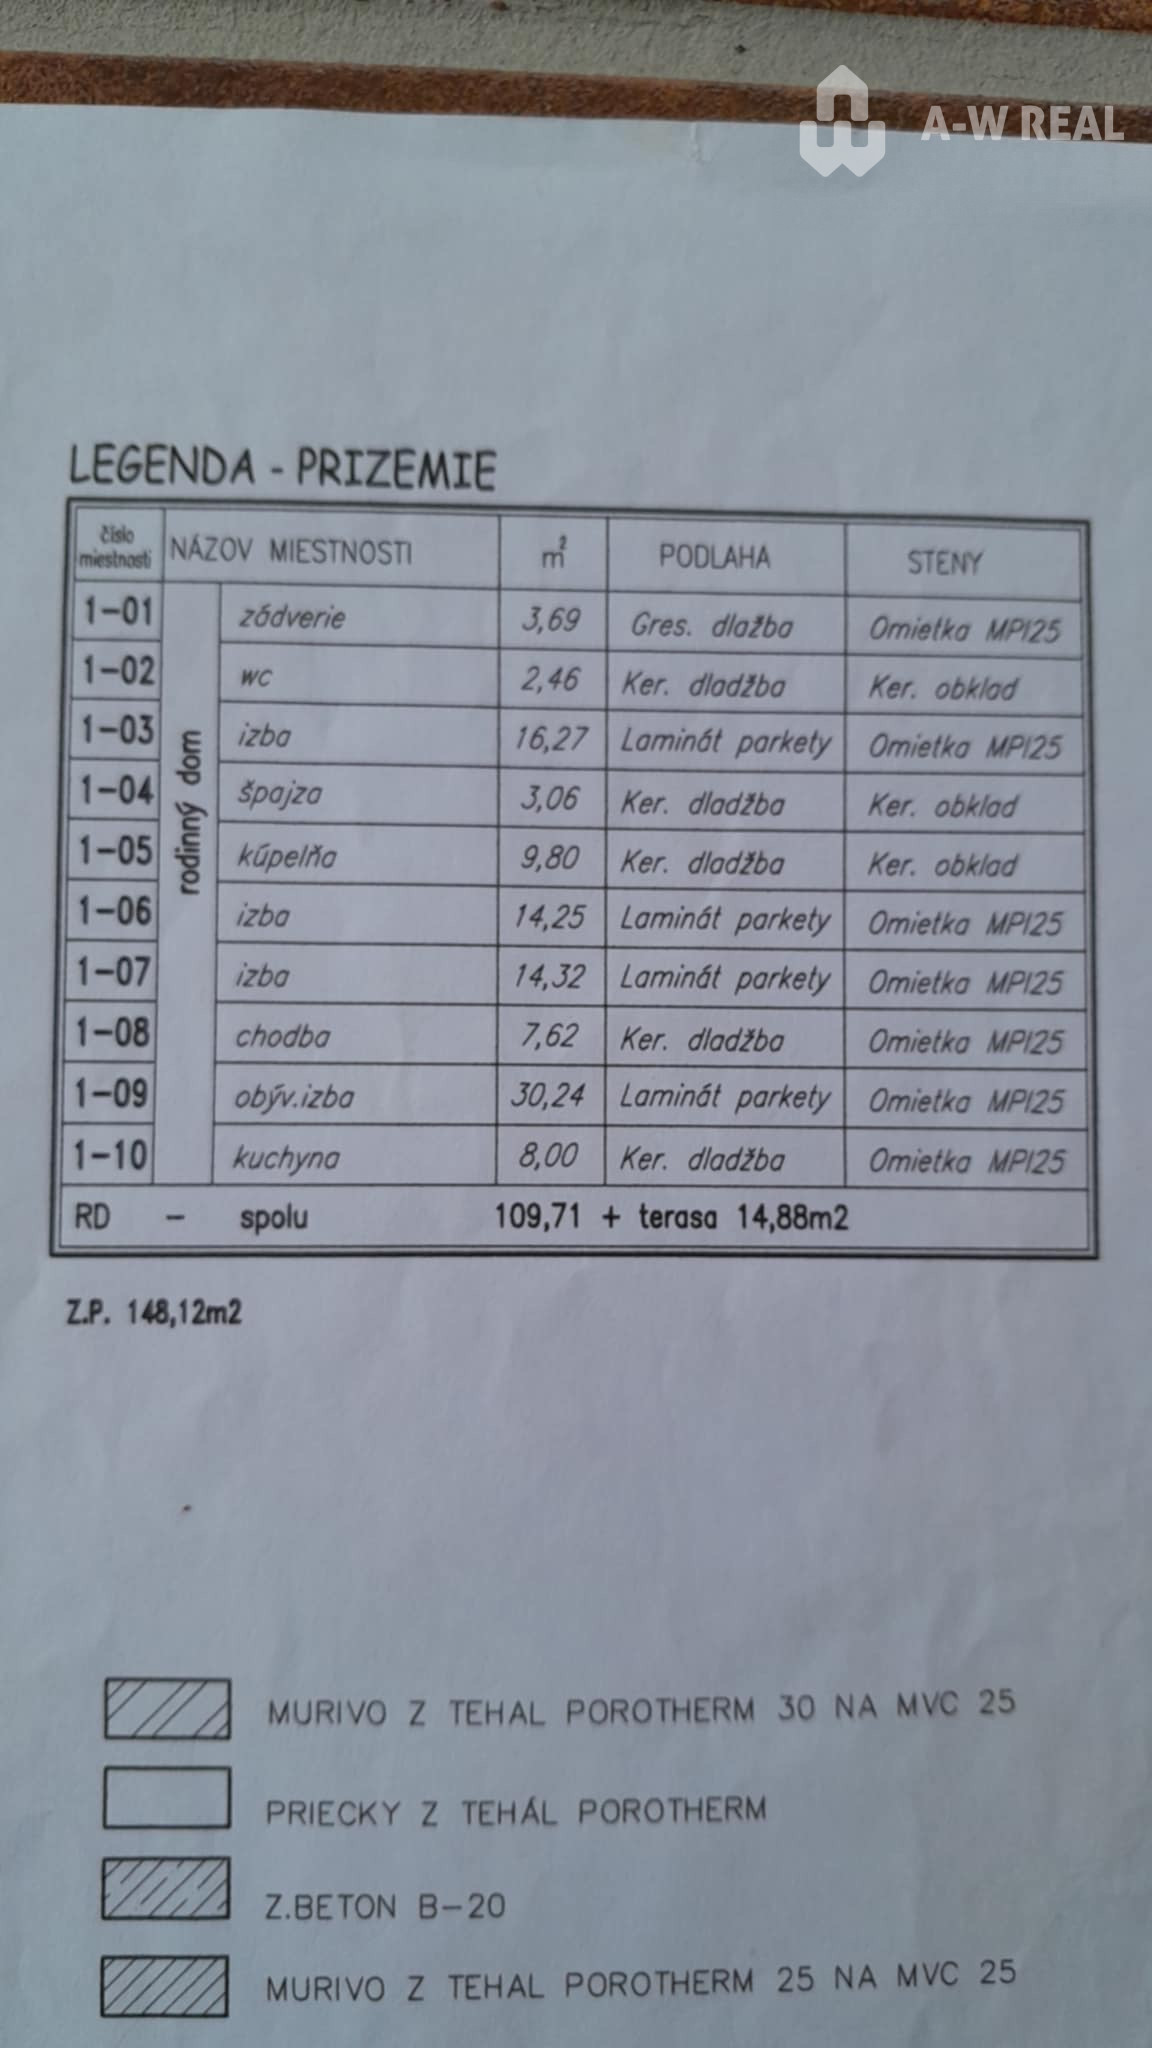 A-W REAL
LEGENDA - PRIZEMIE
číslo miestnosti NÁZOV MIESTNOSTI m² PODLAHA STENY
rodinný dom
1-01 zádverie 3,69 Gres. dlažba Omietka MPI25
1-02 wc 2,46 Ker. dladžba Ker. obklad
1-03 izba 16,27 Laminát parkety Omietka MPI25
1-04 špajza 3,06 Ker. dladžba Ker. obklad
1-05 kúpelňa 9,80 Ker. dladžba Ker. obklad
1-06 izba 14,25 Laminát parkety Omietka MPI25
1-07 izba 14,32 Laminát parkety Omietka MPI25
1-08 chodba 7,62 Ker. dladžba Omietka MPI25
1-09 obýv.izba 30,24 Laminát parkety Omietka MPI25
1-10 kuchyna 8,00 Ker. dladžba Omietka MPI25
RD - spolu 109,71 + terasa 14,88m2
Z.P. 148,12m2
MURIVO Z TEHAL POROTHERM 30 NA MVC 25
PRIECKY Z TEHÁL POROTHERM
Z.BETON B-20
MURIVO Z TEHAL POROTHERM 25 NA MVC 25